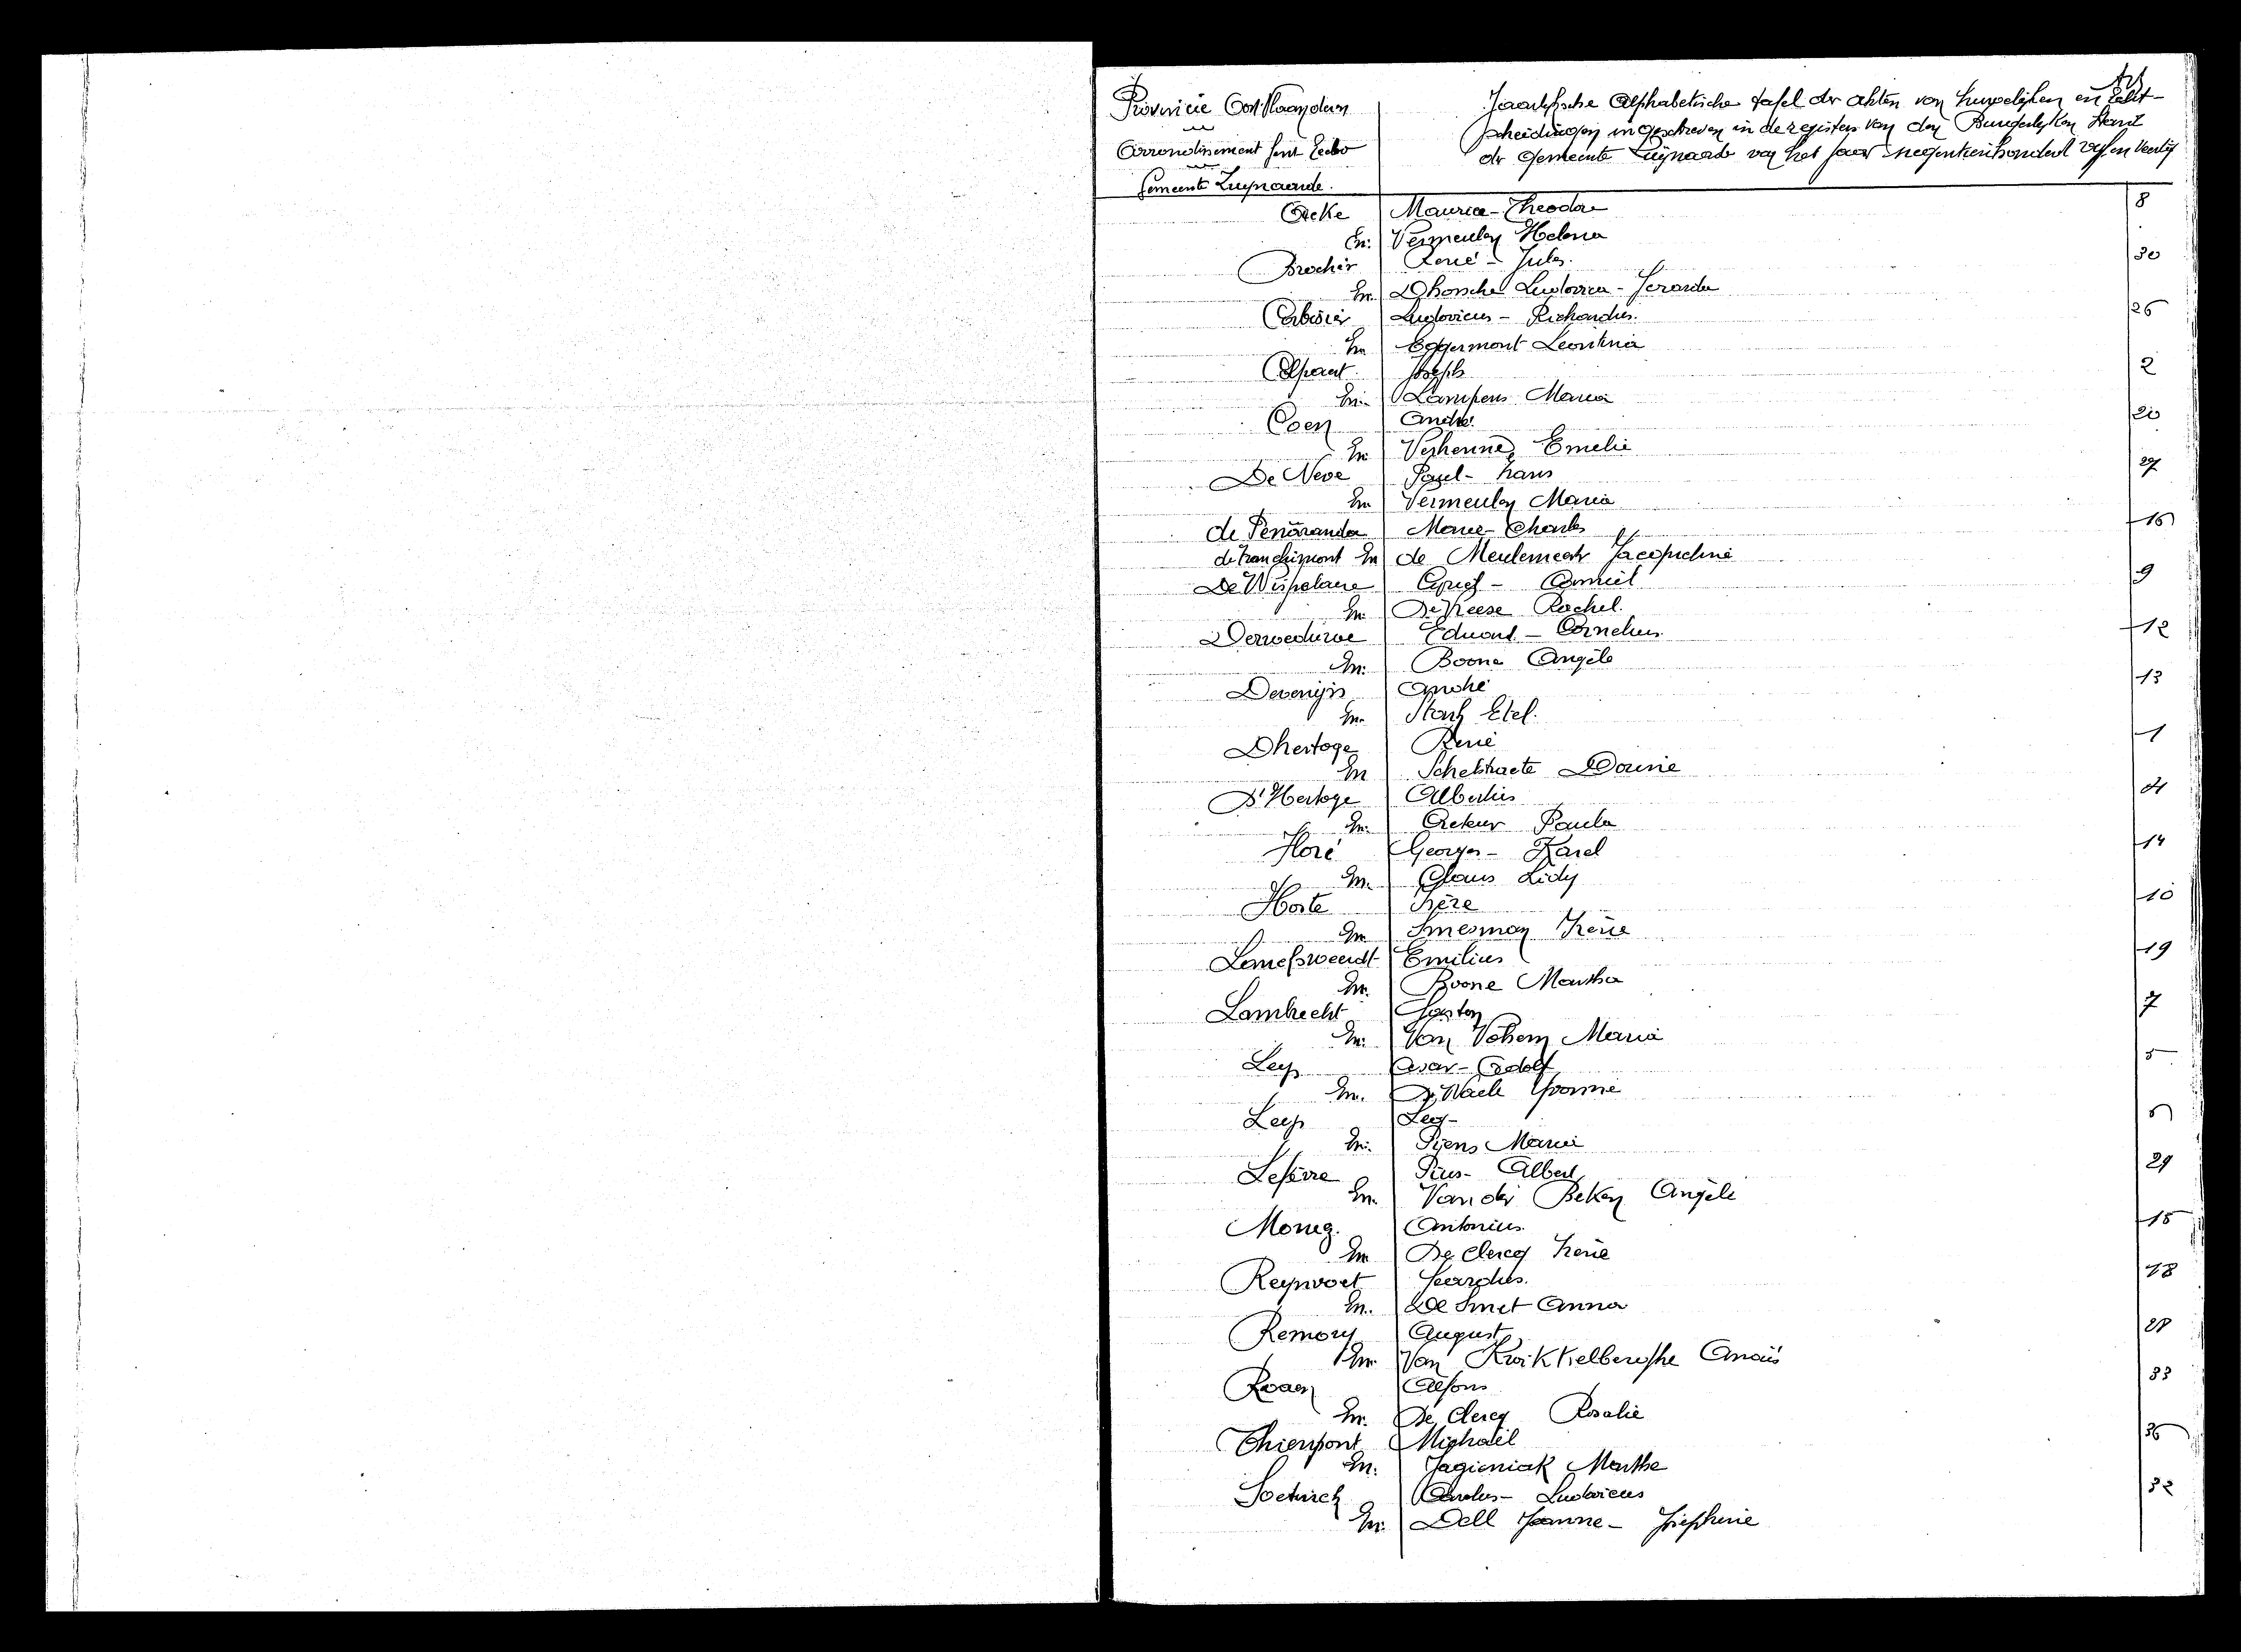 Provincie Oost Vlaanderen
Arrondissement Gent Eecloo
Gemeente Zwijnaarde.
Jaarlijksche Alphabetische tafel der akten van huwelijken en Echt-
scheidingen ingeschreven in de registers van den Burgerlyken Stand
der Gemeente Zwijnaarde van het jaar negentienhonderd en veertig
Acke Maurice-Theodor 8
En: Vermeulen Helena
Brochez René - Jules. 30
En. Dhonsche Ludovica - Gerarda
Ludovicus - Richardus. 26
En Eggermont Leontina
Joseph 2
En. Lampens Maria
Coen André 20
En Verhenne Emelie
De Neve Paul - Frans 27
En Vermeulen Maria
de Penãranda Marie-Charles 16
de Franchimont En de Meulemeester Jacqueline
De Wispelaere Cyriel - Camiel 9
En De Keese Rachel.
Derweduwe Eduard - Cornelius. 12
En. Boone Angèle
Devenijns André 13
En. Stach Etel.
Dhertoge René 1
En Schelstraete Dorine
D'Hertoge Albertus 4
En. Acteur Paula
Floré Georges - Karel 14
En. Claus Lidy
Horte Isère 10
En. Smesman Irène
Lameswaendt Emilius 19
En. Boone Martha
Lambrecht Gaston 7
En. Van Vohem Maria
Ley Oscar - Adolf 5
En. De Waele Yvonne
Ley Leo - 6
En. Piens Maria
Lefèvre Pius - Albert 29
En. Van der Beken Angèle
Moreg. Antonius. 15
En De Clercq Irène
Reynvoet Gerardus. 18
En. De Smet Anna
Remory August 28
En. Van Kwikkelberghe Anaïs
Roaen Alfons 33
En. De Clercq Rosalie
Thienpont Michaël 36
En. Jagieniak Marthe
Soetinck Carolus - Ludovicus 32
En. Dell Jeanne - Josephine